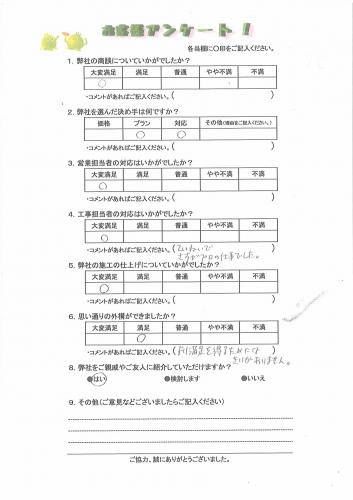 お客様アンケート!
各当欄に〇印をご記入ください。
1. 弊社の商談についていかがでしたか?
大変満足 満足 普通 やや不満 不満
〇
・コメントがあればご記入ください。( )
2. 弊社を選んだ決め手は何ですか?
価格 プラン 対応 その他(理由をご記入ください。)
〇 〇
・コメントがあればご記入ください。( )
3. 営業担当者の対応はいかがでしたか?
大変満足 満足 普通 やや不満 不満
〇
・コメントがあればご記入ください。( )
4. 工事担当者の対応はいかがでしたか?
大変満足 満足 普通 やや不満 不満
〇
・コメントがあればご記入ください。(ていねいで
さすがプロの仕事でした。
5. 弊社の施工の仕上げについていかがでしたか?
大変満足 満足 普通 やや不満 不満
〇
・コメントがあればご記入ください。( )
6. 思い通りの外構ができましたか?
大変満足 満足 普通 やや不満 不満
〇
・コメントがあればご記入ください。(満足を得るためには
きりがありません。)
8. 弊社をご親戚やご友人に紹介していただけますか?
●はい ●検討します ●いいえ
9. その他(ご意見などございましたらご記入ください)
ご協力、誠にありがとうございました。